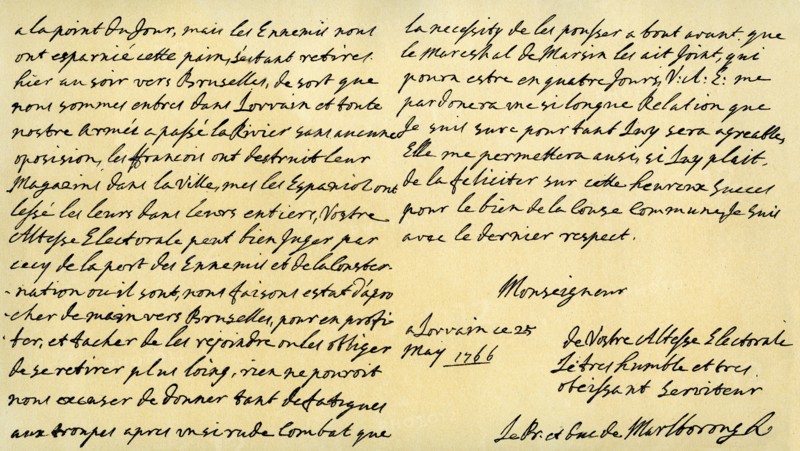 a la point du Jour, mais les Ennemis nous
ont esparnié cette pain, s'estant retires
hier au soir vers Bruselles, de sort que
nous sommes entres dans Lovvain et toute
nostre Armée a passé la Rivier sans aucune
oposision, les ffrancois ont destruit leur
Magazins dans la Ville, mes les Espaniol ont
lessé les leurs dans leurs entiers, Vostre
Altesse Electorale peut bien Juger par
cecy de la port des Ennemis et de la Conster-
-nation ou il sont, nous faisons estat d'apro
-cher de main vers Bruselles, pour en profi-
ter, et tacher de les rejoindre ou les obliger
de se retirer plus loing, rien ne pouroit
nous excuser de donner tant de fatigues
aux troupes apres un si rude Combat que
la necessity de les pousser a bout avant que
le Mareshal de Marsin les ait Joint, qui
poura estre en quatre Jours, V: A: E: me
pardonera une si longue Relation que
Je suis sure pour tant Luy sera agreable,
Elle me permettera ausi, si Luy plait,
de la feliciter sur cette heureux Succes
pour le bien de la Cause Commune, Je suis
avec le dernier respect.
Monseigneur
a Lovvain ce 25
May 1766
de Vostre Altesse Electorale
Le tres humble et tres
obeissant Serviteur
Le Pr. et Duc de Marlborough